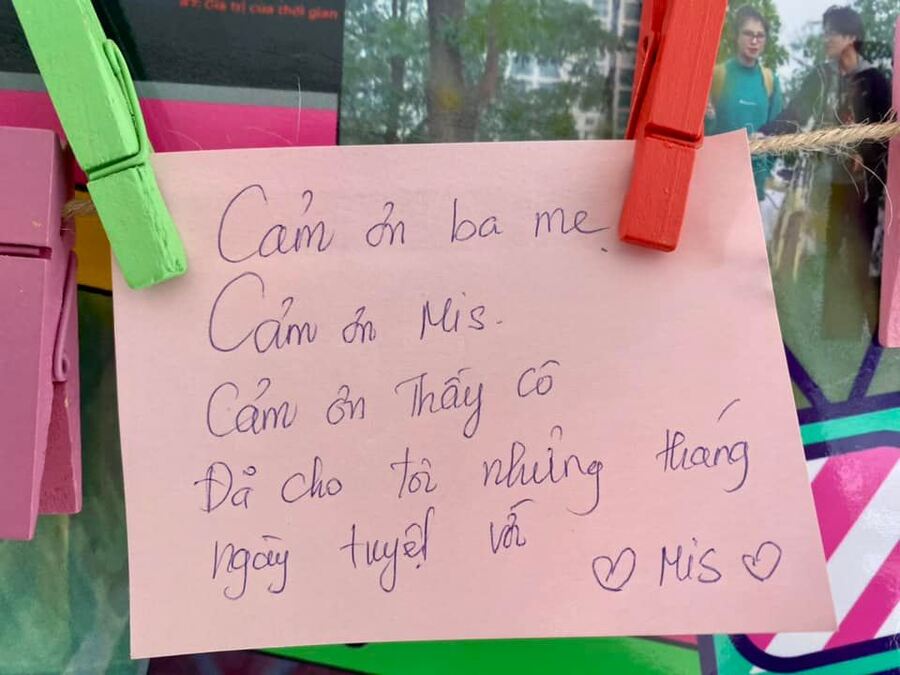 #7: Giá trị của thời gian
Cảm ơn ba mẹ
Cảm ơn Mis.
Cảm ơn Thấy cô
Đả cho tôi những tháng
ngày tuyệt vời
♡ Mis ♡